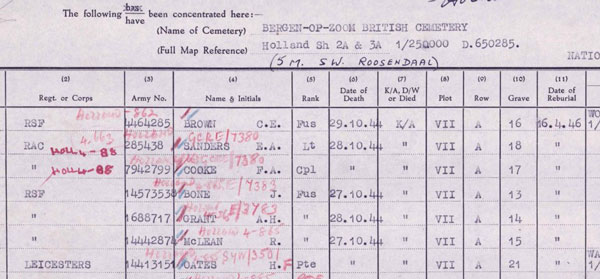 The following has have been concentrated here:—
(Name of Cemetery) BERGEN-OP-ZOOM BRITISH CEMETERY
(Full Map Reference) Holland Sh 2A & 3A 1/250000 D.650285.
(5 M. SW. ROOSENDAAL)
NATIO
(2) (3) (4) (5) (6) (7) (8) (9) (10) (11)
Regt. or Corps Army No. Name & Initials Rank Date of Death K/A, D/W or Died Plot Row Grave Date of Reburial
RSF 4464285 BROWN C.E. Fus 29.10.44 K/A VII A 16 16.4.46
RAC 285438 SANDERS E.A. Lt 28.10.44 " VII A 18 "
" 7942799 COOKE F.A. Cpl " " VII A 17 "
RSF 14573538 BONE J. Fus 27.10.44 " VII A 13 "
" 1688717 GRANT A.H. " 28.10.44 " VII A 14 "
" 14442874 McLEAN R. " 27.10.44 " VII A 15 "
LEICESTERS 14413151 OATES H. F Pte " " VII A 21 "